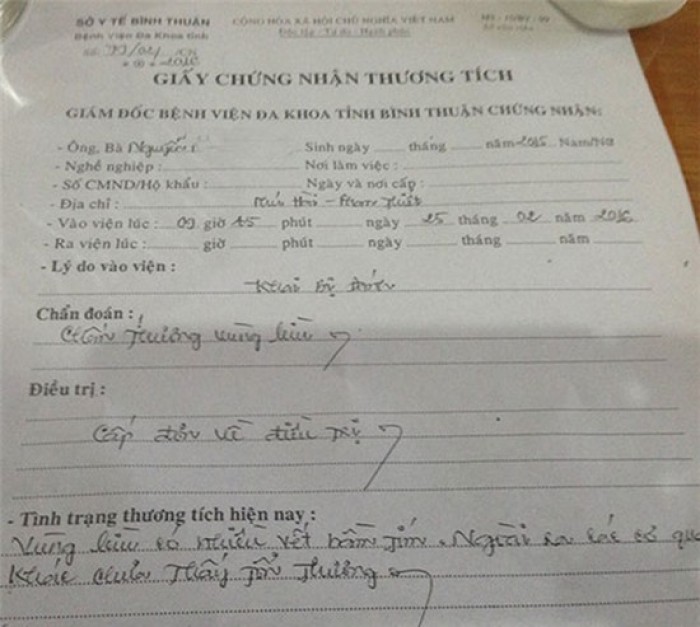 SỞ Y TẾ BÌNH THUẬN
Bệnh Viện Đa Khoa tỉnh
CỘNG HÒA XÃ HỘI CHỦ NGHĨA VIỆT NAM
Độc lập - Tự do - Hạnh phúc
GIẤY CHỨNG NHẬN THƯƠNG TÍCH
GIÁM ĐỐC BỆNH VIỆN ĐA KHOA TỈNH BÌNH THUẬN CHỨNG NHẬN:
- Ông, Bà Nguyễn Sinh ngày tháng năm 2015 Nam/Nữ
- Nghề nghiệp : Nơi làm việc :
- Số CMND/Hộ khẩu : Ngày và nơi cấp :
- Địa chỉ : - Phan Thiết
- Vào viện lúc : 09 giờ 15 phút ngày 25 tháng 02 năm 2016
- Ra viện lúc : giờ phút ngày tháng năm
- Lý do vào viện :
Khai bị đánh
Chẩn đoán :
Chấn thương vùng
Điều trị :
Cấp đơn về điều trị
- Tình trạng thương tích hiện nay :
Vùng có nhiều vết bầm tím. Ngoài ra các cơ qu
khác chưa thấy tổn thương